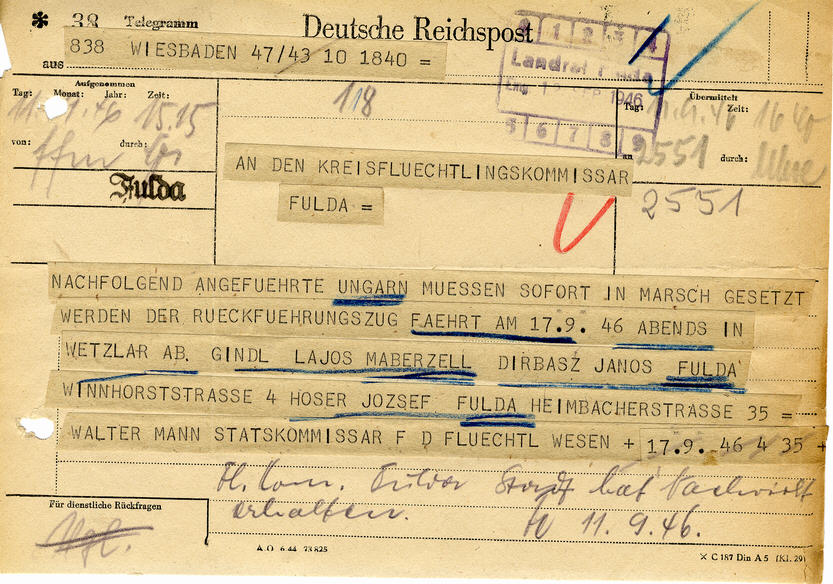 * 38 Telegramm Deutsche Reichspost
838 WIESBADEN 47/43 10 1840 =
aus
0 1 2 3 4
Landrat Fulda
Eing. SEP 1946
5 6 7 8 9
Aufgenommen
Tag: Monat: Jahr: Zeit:
15.15
von: durch:
ffm
Fulda
118
Übermittelt
Tag: Zeit:
11.9.46 1640
an 2551 durch:
2551
AN DEN KREISFLUECHTLINGSKOMMISSAR
FULDA =
NACHFOLGEND ANGEFUEHRTE UNGARN MUESSEN SOFORT IN MARSCH GESETZT
WERDEN DER RUECKFUEHRUNGSZUG FAEHRT AM 17.9. 46 ABENDS IN
WETZLAR AB. GINDL LAJOS MABERZELL DIRBASZ JANOS FULDA
WINNHORSTSTRASSE 4 HOSER JOZSEF FULDA HEIMBACHERSTRASSE 35 =
WALTER MANN STATSKOMMISSAR F D FLUECHTL WESEN + 17.9. 46 4 35 +
Fl. Kom. Fulda Stadt hat Nachricht
erhalten. 11.9.46.
Für dienstliche Rückfragen
A.O. 6 44 73 825
× C 187 Din A 5 (Kl. 29)